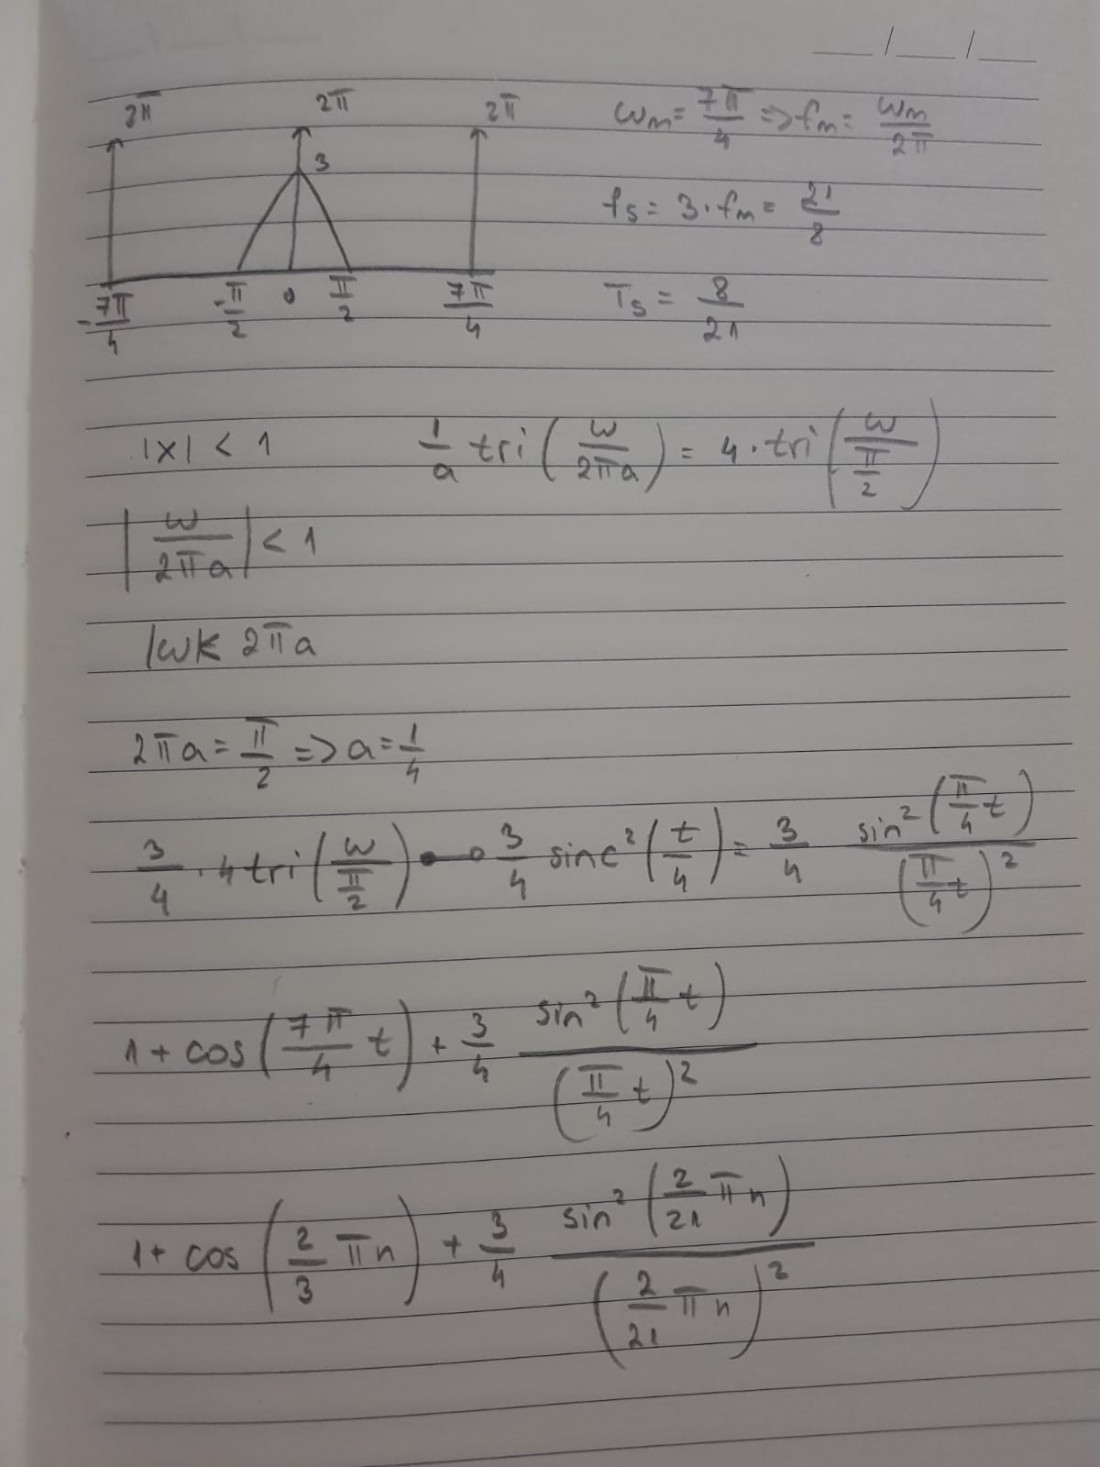 __/__/__
2π 2π 2π ωm = 7π/4 => fm = ωm/2π
3
fs = 3·fm = 21/8
-7π/4 -π/2 0 π/2 7π/4 Ts = 8/21
|x| < 1 1/a tri(ω/2πa) = 4·tri(ω/(π/2))
|ω/2πa| < 1
|ω|< 2πa
2πa = π/2 => a = 1/4
3/4 · 4 tri(ω/(π/2)) ●—○ 3/4 sinc²(t/4) = 3/4 sin²(π/4 t)/(π/4 t)²
1 + cos(7π/4 t) + 3/4 sin²(π/4 t)/(π/4 t)²
1 + cos(2/3 πn) + 3/4 sin²(2/21 πn)/(2/21 πn)²